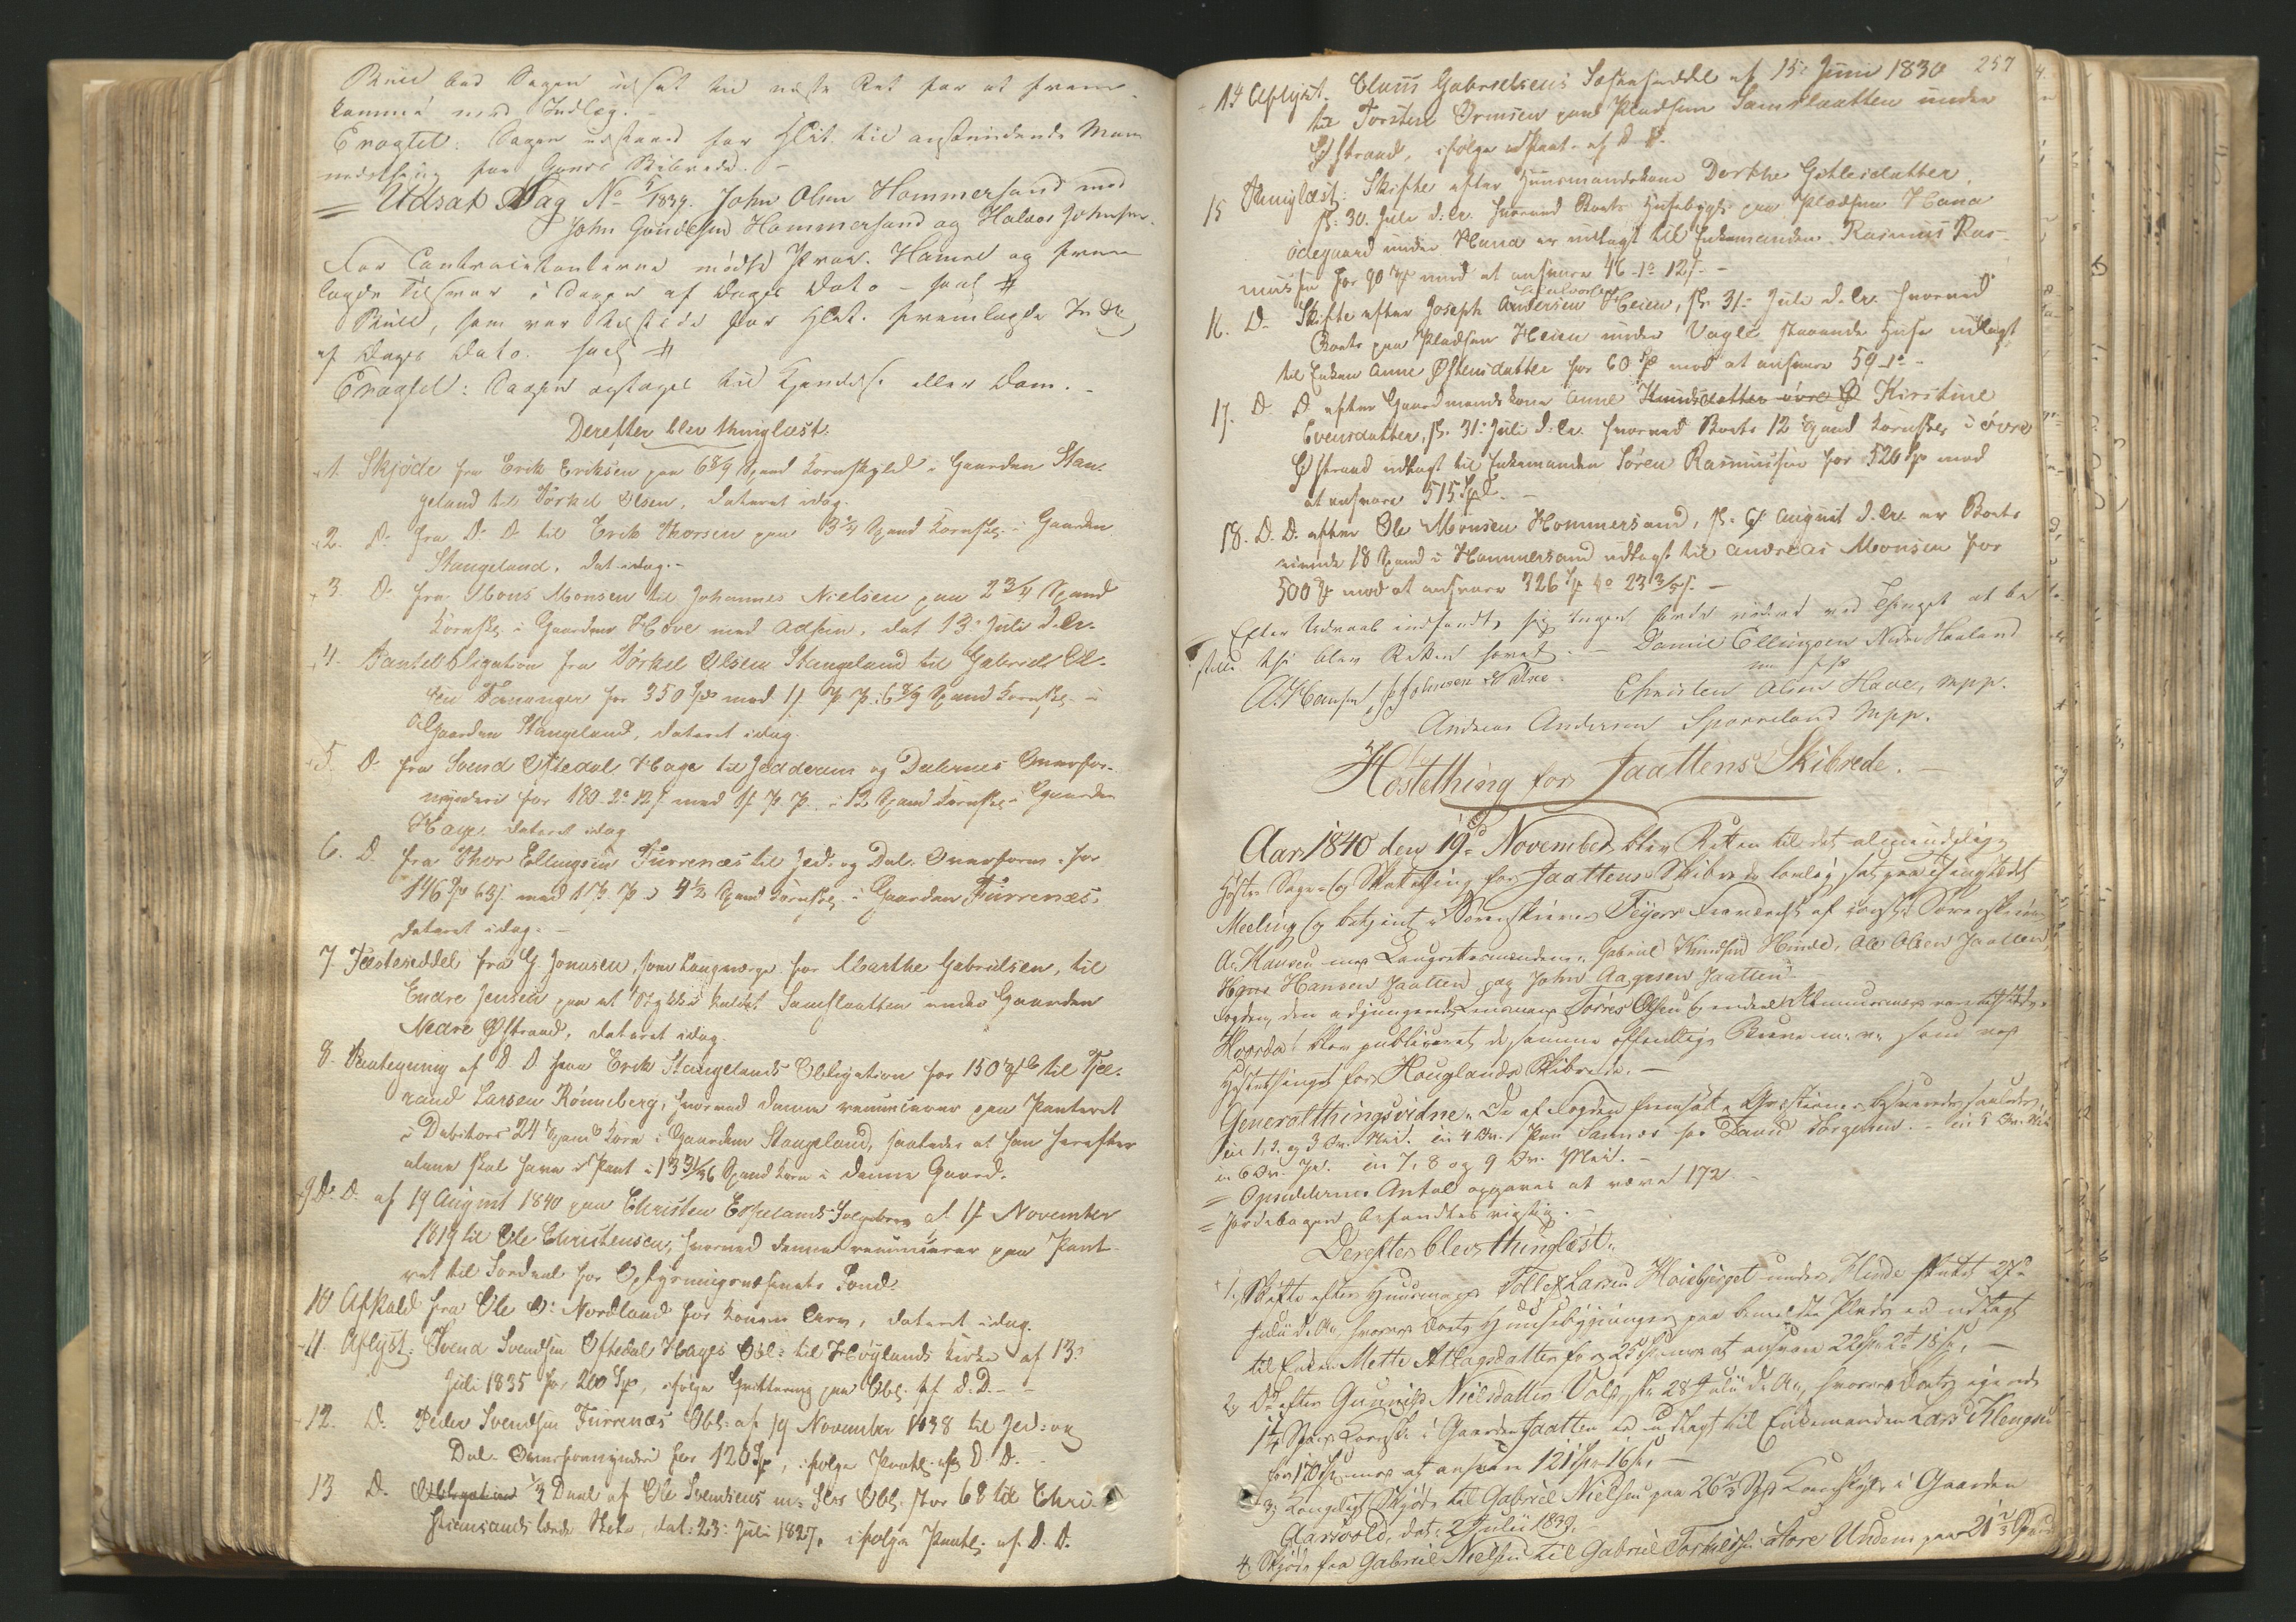 Bued bad Sagen udsat til næste Ret for at frem-
komme med Indlæg.
Eragtet: Sagen udstaaer
Udsat Sag No 5/1839. John Olsen Hommersand mod
John Gundersen Hommersand og Halvor Johnsen.
For Contracitanterne mødte Proc. Hansen og frem-
lagde Tilsvar i Sagen af Dags Dato
Bull, som var tilstede for fremlagde
af Dags Dato.
Eragtet: Sagen optages til Kjendelse eller Dom.
Derefter blev thinglæst:
1. Skjøde fra Erik Eriksen paa 6 8/9 Spand Kornskyld i Gaarden Stan-
geland til Torkel Olsen, dateret idag.
2. Do fra Do Do til Erik Thorsen paa 3 Spand Kornsk. i Gaarden
Stangeland, dat. idag.
3. Do fra Mons Monsen til Johannes Nielsen paa 2 3/4 Spand
Kornsk. i Gaarden Hove med Adsen, dat 13. Juli d. Ar.
4. Panteobligation fra Torkel Olsen Stangeland til Gabriel Ol-
sen Tananger for 350 Spd mod 1st P. P. i 6 8/9 Spand Kornsk. i
Gaarden Stangeland, dateret idag.
5. Do fra Svend Oftedal Hage til Jedderens og Dalernes Overfor-
mynderi for 180. 2o 12 s. mod 1st P. P. i 12 Spand Kornsk. i Gaarden
Hage. dateret idag
6. Do fra Thor Ellingsen Furrenæs til Jed. og Dal. Overform. for
146 Sp 63 s. mod 1 P. P. i 4 1/2 Spand Kornsk. i Gaarden Furrenæs.
dateret idag.
7. Fæsteseddel fra G. Jonasen, som Laugværge for Marthe Gabrielsen, til
Endre Jensen paa et Stykke kaldet Samslaatten under Gaarden
Nedre Østraad, dateret idag.
8. Paategning af D. D. paa Erik Stangelands Obligation for 150 Spd til Tjel-
rand Larsen Rønneberg, hvorved denne renuncierer paa Panteret
i Debitors 24 Spand Korn i Gaarden Stangeland, saaledes at han herefter
alene skal have Pant i 13 31/36 Spand Korn i denne Gaard.
9 Do. Do. af 19 August 1840 paa Christen Espelands af 1st November
1819 til Ole Christensen, hvorved denne renuncierer paa Pant-
ret til Fordeel for Oplysningsvæsenets Fond.
10 Afkald fra Ole O. Nordland for Arv, dateret idag.
11. Aflyst: Svend Svendsen Oftedal Hages Obl: til Høylands Kirke af 13.
Juli 1835 for 200 Sp, ifølge Qvittering paa Obl. af D. D.
12. Do Peder Svendsen Furrenæs Obl. af 19 November 1838 til Jed: og
Dal. Overformynderi for 120 Sp, ifølge Paateg. af D. D.
13 Do Obligation 1/2 Deel af Ole Svendsens m. fleres Obl. stor 68 til Chri-
stiansands lærde Skole, dat: 23: Juli 1827, ifølge Paateg. af D. D.
257
14 Aflyst. Claus Gabrielsens Fæsteseddel af 15. Juni 1830
til Torsten Ormsen paa Pladsen Samslaatten under
Østraad, ifølge Paat. af D. D.
15 Thinglæst: Skifte efter Huusmandskone Dorthe Gitlesdatter,
sl. 30. Juli d. Ar. hvorved Boets Husebygn. paa Pladsen Hana
ødegaard under Hana er udlagt til Enkemanden Rasmus Ras-
mussen for 90 Sp mod at ansvare 46 - 1o 12 s. -
16. Do Skifte efter Joseph Andersen Heien, sl. 31. Juli d. Ar. hvorved
Boets paa Pladsen Heien under Vagle staaende Huse udlagt
til Enken Anne Østensdatter for 60 Sp mod at ansvare 59 - 1o -
17. Do Do efter Gaardmandskone Anne Knudsdatter øvre Ø Kirstine
Evensdatter, sl. 31. Juli d. Ar. hvorved Boets 12 Spand Kornskyl i øvre
Østraad udlagt til Enkemanden Søren Rasmussen for 520 Sp mod
at ansvare 515 Spd.
18. Do Do efter Ole Monsen Hommersand, sl. 6. August d. Ar. er Boets
eiende 18 Spand i Hommersand udlagt til Andreas Monsen for
500 Sp mod at ansvare 326 Sp 4o 23 3/5 s. -
Efter Udraab indfandt sig ingen havde videre ved Thinget at be-
stille, thi blev Retten hævet. - Daniel Ellingsen Nedre Haaland
A. Hansen Christen Olsen Have, mpp.
Andreas Andersen Sporreland mpp.
Høstething for Jaattens Skibrede.
Aar 1840 den 19de November blev Retten til det almindelige
Høste- Sage- og Skatething for Jaattens Skibrede lovlig sat paa Thingstedet
Meeling og betjent i Sorenskriver Feyers Fraværelse af const. Sorenskriver
A. Hansen med Laugrettesmændene: Gabriel Knudsen Hinde, Ole Olsen Jaatten,
Hans Hansen Jaatten og John Aagesen Jaatten.
Fogden, den adjungerede Lensmand Torres Olsen og endeel Almuesmænd vare tilstede.
Hvorda blev publiceret de samme offentlige Breve m. v. som ved
Høstethinget for Houglands Skibrede. -
Generalthingsvidne. De af Fogden fremsatte Qvestioner besvaredes saaledes:
in 1, 2 og 3 Qv. Nei. in 4 Qv. in 5 Qv. Nei
in 6 Qv. Ja. in 7, 8 og 9 Qv. Nei. -
Opsiddernes Antal opgaves at være 172.
Jordebogen befandtes rigtig. -
Derefter blev thinglæst:
1, Skifte efter Huusmand Tollef Larsen Høiebjerget under Hinde sluttet 27de
Julii d. A., hvorved Boets Huusebygninger paa bemeldte Plads er udlagt
til Enken Mette Aslagsdatter for 25 Sp mod at ansvare 22 Sp 2o 18 s. -
2, Do efter Gunnild Nielsdatter Vold, sl. 28 Julii d. A., hvorved Boets eiende
1 1/4 Spand Kornsk. i Gaarden Jaatten er udlagt til Enkemanden Lars Klengsen
for 170 Sp mod at ansvare 121 Sp 16 s. -
3, Kongeligt Skjøde til Gabriel Nielsen paa 26 2/3 Spd Kornskyld i Gaarden
Aarvold, dat. 2 Julii 1839.
4, Skjøde fra Gabriel Nielsen til Gabriel Torkildsen store Undem paa 21 1/3 Spand